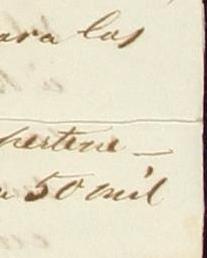 para las
pertene_
a 50 mil